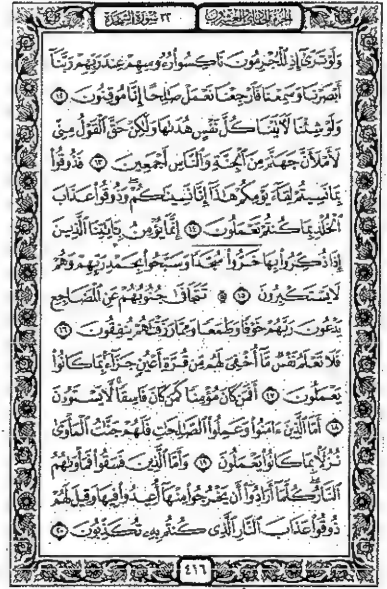 وَلَوْ تَرَىٰٓ إِذِ ٱلْمُجْرِمُونَ نَاكِسُوا۟ رُءُوسِهِمْ عِندَ رَبِّهِمْ رَبَّنَآ
أَبْصَرْنَا وَسَمِعْنَا فَٱرْجِعْنَا نَعْمَلْ صَٰلِحًا إِنَّا مُوقِنُونَ ١٢
وَلَوْ شِئْنَا لَءَاتَيْنَا كُلَّ نَفْسٍ هُدَىٰهَا وَلَٰكِنْ حَقَّ ٱلْقَوْلُ مِنِّى
لَأَمْلَأَنَّ جَهَنَّمَ مِنَ ٱلْجِنَّةِ وَٱلنَّاسِ أَجْمَعِينَ ١٣ فَذُوقُوا۟
بِمَا نَسِيتُمْ لِقَآءَ يَوْمِكُمْ هَٰذَآ إِنَّا نَسِينَٰكُمْ ۖ وَذُوقُوا۟ عَذَابَ
ٱلْخُلْدِ بِمَا كُنتُمْ تَعْمَلُونَ ١٤ إِنَّمَا يُؤْمِنُ بِـَٔايَٰتِنَا ٱلَّذِينَ
إِذَا ذُكِّرُوا۟ بِهَا خَرُّوا۟ سُجَّدًا وَسَبَّحُوا۟ بِحَمْدِ رَبِّهِمْ وَهُمْ
لَا يَسْتَكْبِرُونَ ۩ ١٥ تَتَجَافَىٰ جُنُوبُهُمْ عَنِ ٱلْمَضَاجِعِ
يَدْعُونَ رَبَّهُمْ خَوْفًا وَطَمَعًا وَمِمَّا رَزَقْنَٰهُمْ يُنفِقُونَ ١٦
فَلَا تَعْلَمُ نَفْسٌ مَّآ أُخْفِىَ لَهُم مِّن قُرَّةِ أَعْيُنٍ جَزَآءًۢ بِمَا كَانُوا۟
يَعْمَلُونَ ١٧ أَفَمَن كَانَ مُؤْمِنًا كَمَن كَانَ فَاسِقًا ۚ لَّا يَسْتَوُۥنَ
١٨ أَمَّا ٱلَّذِينَ ءَامَنُوا۟ وَعَمِلُوا۟ ٱلصَّٰلِحَٰتِ فَلَهُمْ جَنَّٰتُ ٱلْمَأْوَىٰ
نُزُلًۢا بِمَا كَانُوا۟ يَعْمَلُونَ ١٩ وَأَمَّا ٱلَّذِينَ فَسَقُوا۟ فَمَأْوَىٰهُمُ
ٱلنَّارُ ۖ كُلَّمَآ أَرَادُوٓا۟ أَن يَخْرُجُوا۟ مِنْهَآ أُعِيدُوا۟ فِيهَا وَقِيلَ لَهُمْ
ذُوقُوا۟ عَذَابَ ٱلنَّارِ ٱلَّذِى كُنتُم بِهِۦ تُكَذِّبُونَ ٢٠
٤١٦